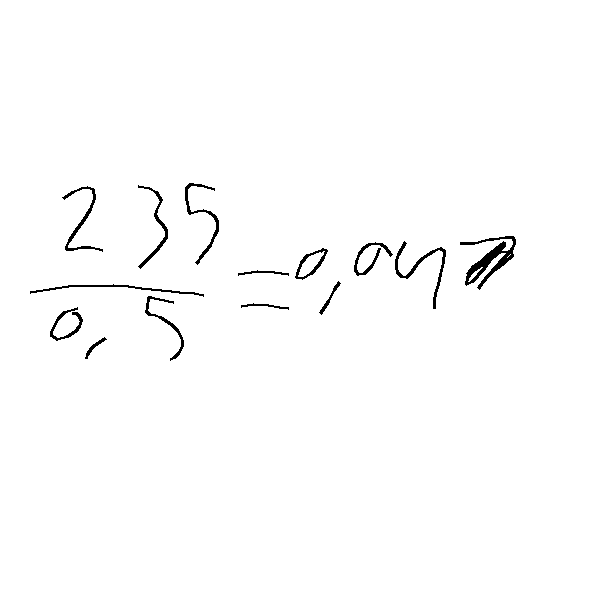 235
0,5 = 0,04